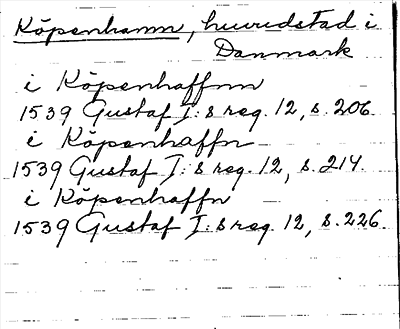 Köpenhamn, huvudstad i
Danmark
i Köpenhaffnn
1539 Gustaf I:s reg. 12, s. 206
i Köpenhaffn
1539 Gustaf I:s reg. 12, s. 214
i Köpenhaffn
1539 Gustaf I:s reg. 12, s. 226.